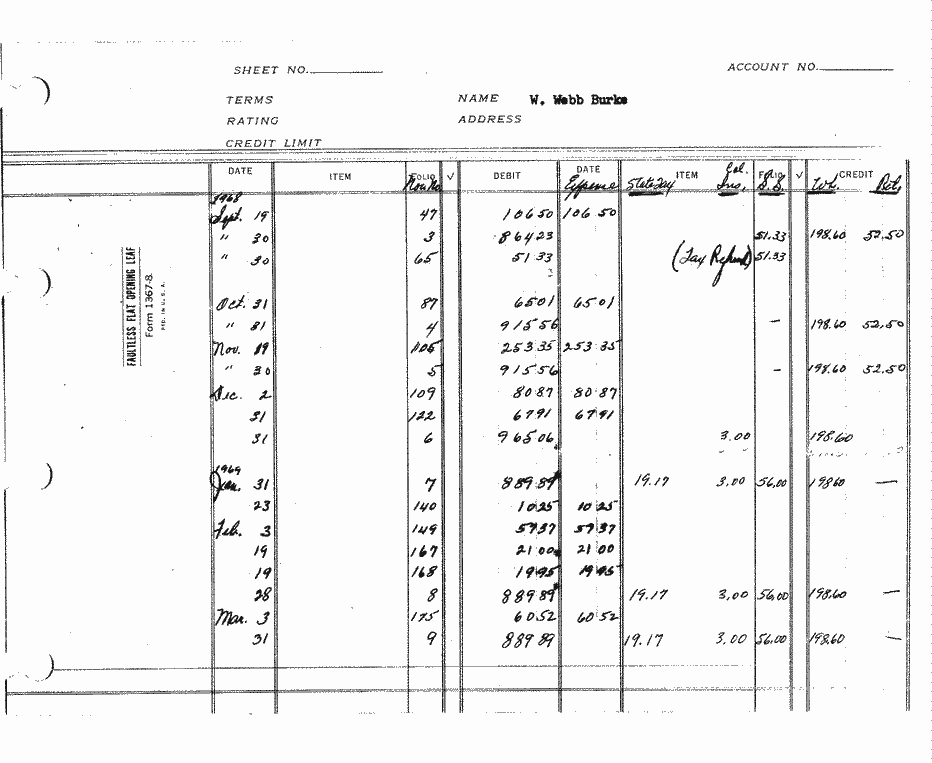 SHEET NO.
ACCOUNT NO.
TERMS
NAME W. Webb Burke
RATING
ADDRESS
CREDIT LIMIT
DATE ITEM FOLIO √ DEBIT DATE ITEM FOLIO √ CREDIT
Vou No Expense State Tax Gal. Ins. S.S. Wh. Ret.
1968
Sept. 19 47 106 50 106 50
" 30 3 864 23 51.33 198.60 52.50
" 30 65 51 33 (Tax Refund) 51.33
Oct. 31 87 65 01 65 01
" 31 4 915 56 — 198.60 52.50
Nov. 19 105 253 35 253 35
" 30 5 915 56 — 198.60 52.50
Dec. 2 109 80 87 80 87
31 122 67 91 67 91
31 6 965 06 3.00 198.60
1969
Jan. 31 7 889 89 19.17 3.00 56.00 198.60 —
23 140 10 25 10 25
Feb. 3 149 57 37 57 37
19 167 21 00 21 00
19 168 19 95 19 95
28 8 889 89 19.17 3.00 56.00 198.60 —
Mar. 3 175 60 52 60 52
31 9 889 89 19.17 3.00 56.00 198.60 —
FAULTLESS FLAT OPENING LEAF
Form 1367-8.
MFD. IN U. S. A.